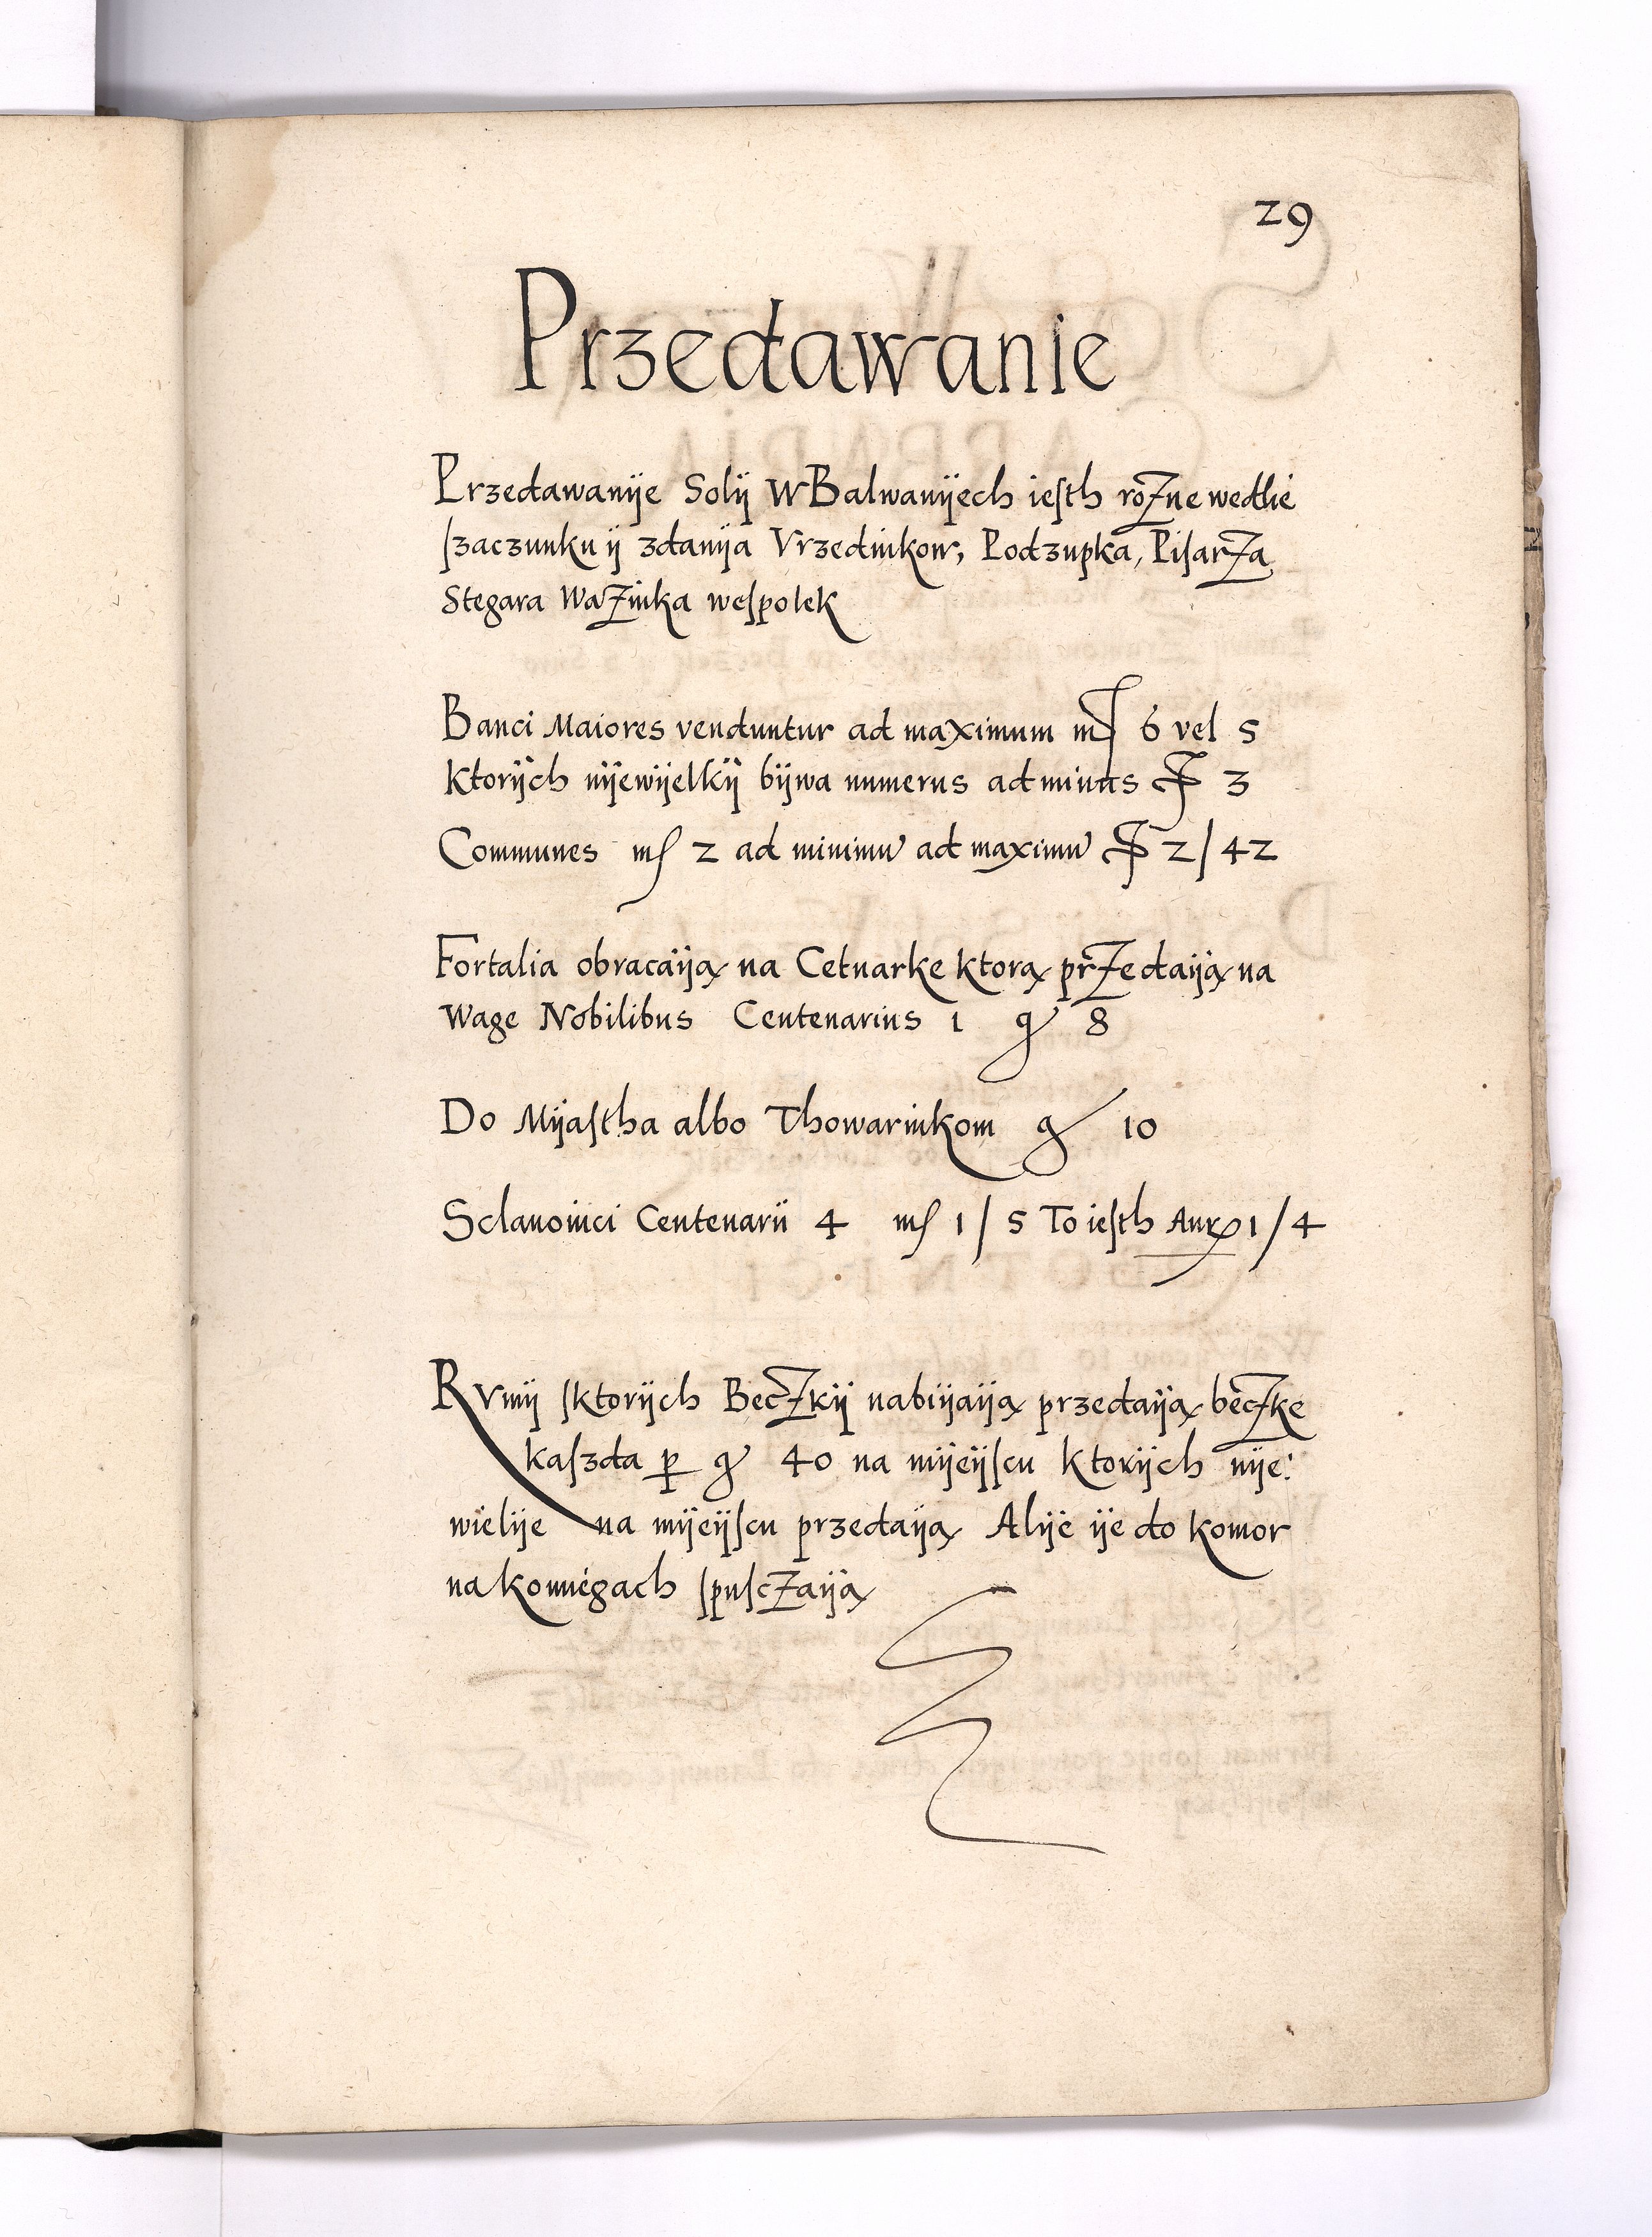 29
Przedawanie
Przedawanije Solij W Balwanijech iesth rożne wedlie
szaczunku ij zdanija Vrzednikow, Podzupka, Pisarza
Stegara Ważnika wespolek
Banci Maiores venduntur ad maximum mſ 6 vel 5
Ktorijch nijewijelkij bijwa numerus ad minus 3
Communes mſ 2 ad minimũ ad maximũ 2/42
Fortalia obracaiją na Cetnarke ktorą przedaiją na
Wage Nobilibus Centenarius 1 g 8
Do Mijastha albo Thowarnikom g 10
Sclauoinci Centenarii 4 mſ 1/5 To iesth Aur 1/4
Rvmij sktorijch Beczkij nabijaiją przedaiją beczke
kaszda p g 40 na mijeijscu Ktorijch nije:
wielije na mijeijscu przedaiją Alije ije do Komor
na Konnegach spusczaiją